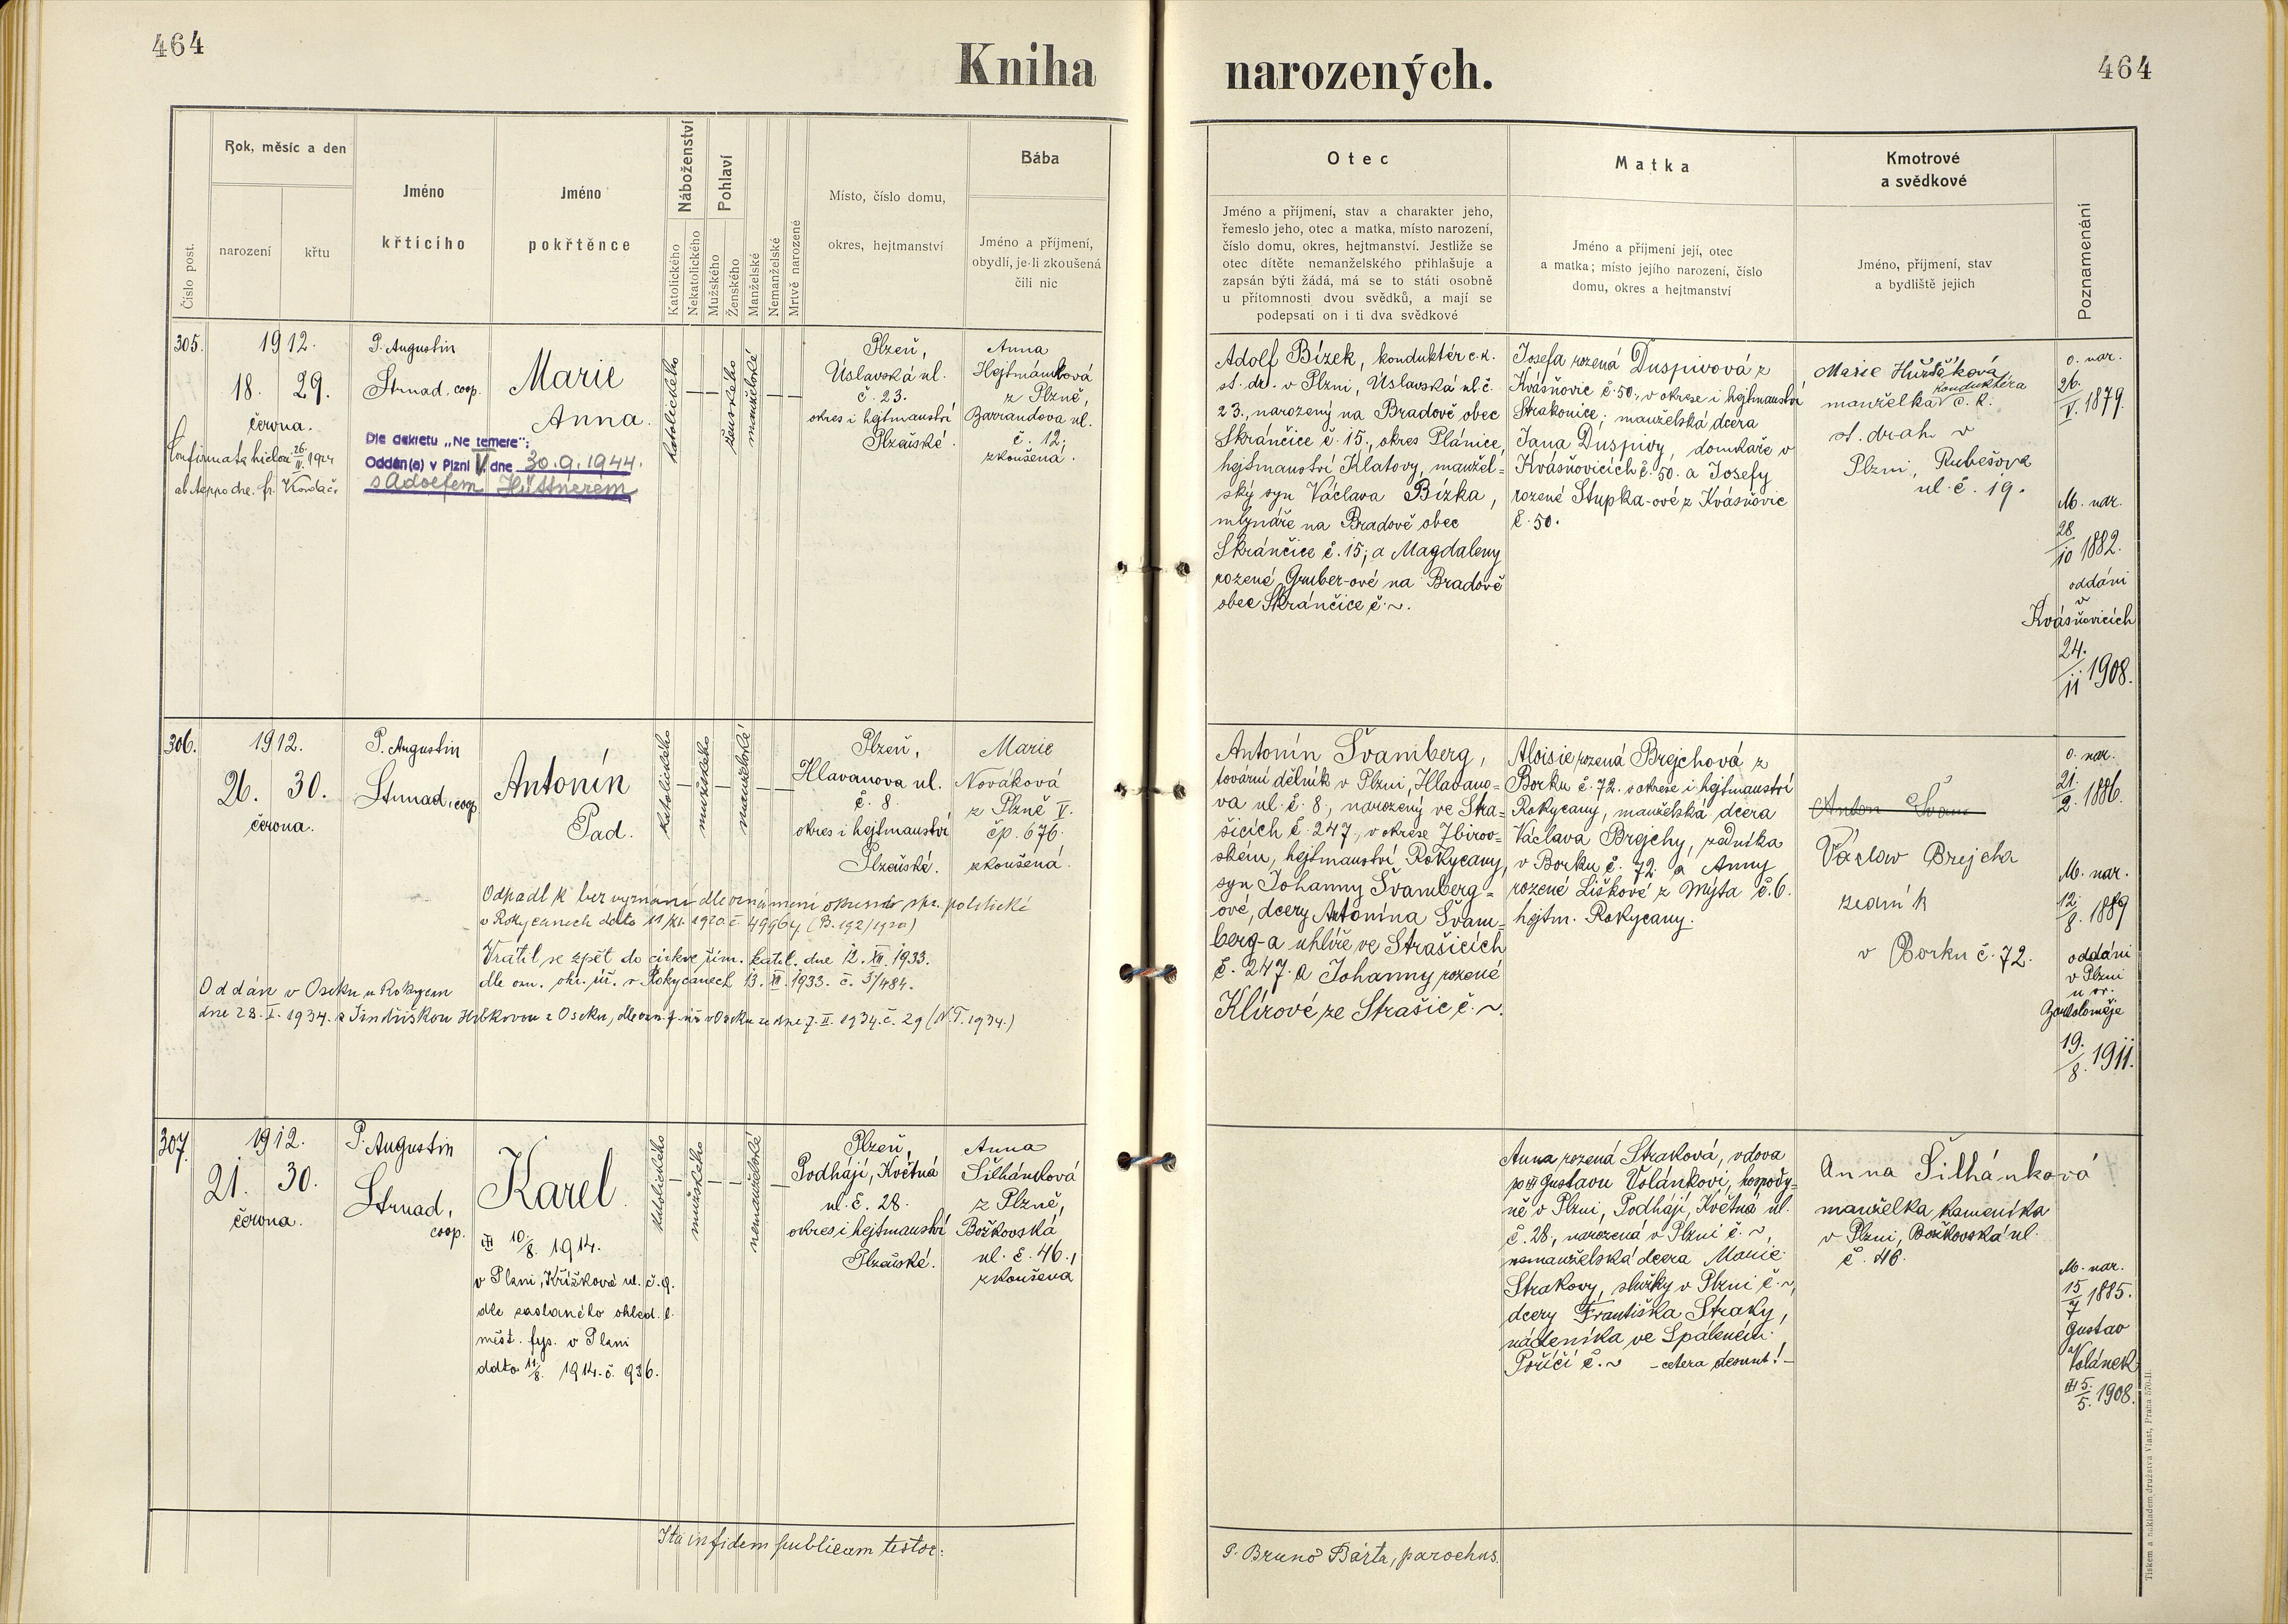 464
Kniha narozených.
464
Číslo post.
Rok, měsíc a den
narození
křtu
Jméno
křtícího
Jméno
pokřtěnce
Náboženství
Katolického
Nekatolického
Pohlaví
Mužského
Ženského
Manželské
Nemanželské
Mrtvě narozené
Místo, číslo domu,
okres, hejtmanství
Bába
Jméno a příjmení,
obydlí, je-li zkoušená
čili nic
Otec
Jméno a příjmení, stav a charakter jeho,
řemeslo jeho, otec a matka, místo narození,
číslo domu, okres, hejtmanství. Jestliže se
otec dítěte nemanželského přihlašuje a
zapsán býti žádá, má se to státi osobně
u přítomnosti dvou svědků, a mají se
podepsati on i ti dva svědkové
Matka
Jméno a příjmení její, otec
a matka; místo jejího narození, číslo
domu, okres a hejtmanství
Kmotrové
a svědkové
Jméno, příjmení, stav
a bydliště jejich
Poznamenání
305.
1912.
18. 29.
června.
26. II. 1924
P. Augustin
Strnad, coop.
Marie
Anna.
Dle dekretu „Ne temere":
Oddán(a) v Plzni V dne 30.9.1944.
s Adolfem Hüttnerem
katolického
—
—
ženského
manželské
—
—
Plzeň,
Úslavská ul.
č. 23.
okres i hejtmanství
Plzeňské.
Anna
Hejtmánková
z Plzně,
Barrandova ul.
č. 12;
zkoušená.
Adolf Bízek, konduktér c. k.
st. dr. v Plzni, Úslavská ul. č.
23., narozený na Bradově obec
Skránčice č. 15., okres Plánice,
hejtmanství Klatovy, manžel=
ský syn Václava Bízka,
mlynáře na Bradově obec
Skránčice č. 15; a Magdaleny
rozené Gruber-ové na Bradově
obec Skránčice č. ~.
Josefa rozená Duspivová z
Kvásňovic č. 50., v okrese i hejtmanství
Strakonice; manželská dcera
Jana Duspivy, domkáře v
Kvásňovicích č. 50. a Josefy
rozené Stupka-ové z Kvásňovic
č. 50.
Marie
manželka konduktéra c. k.
st. drah v
Plzni, Rubešova
ul. č. 19.
o. nar.
26. V. 1879.
M. nar.
28/10 1882.
oddáni
v
Kvásňovicích
24./11 1908.
306.
1912.
26. 30.
června.
P. Augustin
Strnad, coop.
Antonín
Pad.
katolického
—
mužského
—
manželské
—
—
Plzeň,
Hlavanova ul.
č. 8
okres i hejtmanství
Plzeňské.
Marie
Nováková
z Plzně V.
čp. 676.
zkoušená.
Odpadl k bez vyznání dle oznámení okresní spr. politické
v Rokycanech ddto 11/XI. 1920 č. 49964 (B. 192/1920)
Vrátil se zpět do církve řím. katol. dne 12. XII. 1933.
dle ozn. okr. úř. v Rokycanech 13. XII. 1933. č. 51484.
Oddán v Oseku u Rokycan
dne 28. I. 1934. s Jindřiškou Hůlkovou z Oseku, dle ozn. f. úř. v Oseku ze dne 7. II. 1934. č. 29 (N.T. 1934.)
Antonín Švamberg,
tovární dělník v Plzni, Hlavano=
va ul. č. 8, narozený ve Stra=
šicích č. 247., v okrese Zbirov=
ském, hejtmanství Rokycany,
syn Johanny Švamberg=
ové, dcery Antonína Švam=
berg-a uhlíře ve Strašicích
č. 247. a Johanny rozené
Klírové ze Strašic č. ~.
Aloisie rozená Brejchová z
Borku č. 72. v okrese i hejtmanství
Rokycany, manželská dcera
Václava Brejchy, rolníka
v Borku č. 72. a Anny
rozené Liškové z Mýta č. 6.
hejtm. Rokycany.
Anton Švam
Václav Brejcha
v Borku č. 72.
o. nar.
21/2. 1886.
M. nar.
12./8. 1889
oddáni
v Plzni
u sv.
Bartoloměje
19./8. 1911.
307.
1912.
21. 30.
června.
P. Augustin
Strnad,
coop.
Karel.
10/8. 1914.
v Plzni, Křížková ul. č. 9.
dle zaslaného ohled. l.
měst. fys. v Plzni
ddto 11/8. 1914. č. 936.
katolického
—
mužského
—
—
nemanželské
—
Plzeň,
Podhájí, Květná
ul. č. 28.
okres i hejtmanství
Plzeňské.
Anna
Šilhánková
z Plzně,
Božkovská
ul. č. 46.,
zkoušená
Anna rozená Straková, vdova
po Gustavu Volánkovi, hospody=
ně v Plzni, Podhájí, Květná ul.
č. 28., narozená v Plzni č. ~,
nemanželská dcera Marie
Strakovy, služky v Plzni č. ~,
dcery Františka Straky,
nádeníka ve Spáleném
Poříčí č. ~ - cetera desunt! -
Anna Šilhánková
manželka kameníka
v Plzni, Božkovská ul.
č. 46.
M. nar.
15/7 1885.
Gustav
Volánek
5./5. 1908.
Ita in fidem publicam testor:
P. Bruno Bárta, parochus.
Tiskem a nákladem družstva Vlast, Praha 570-II.